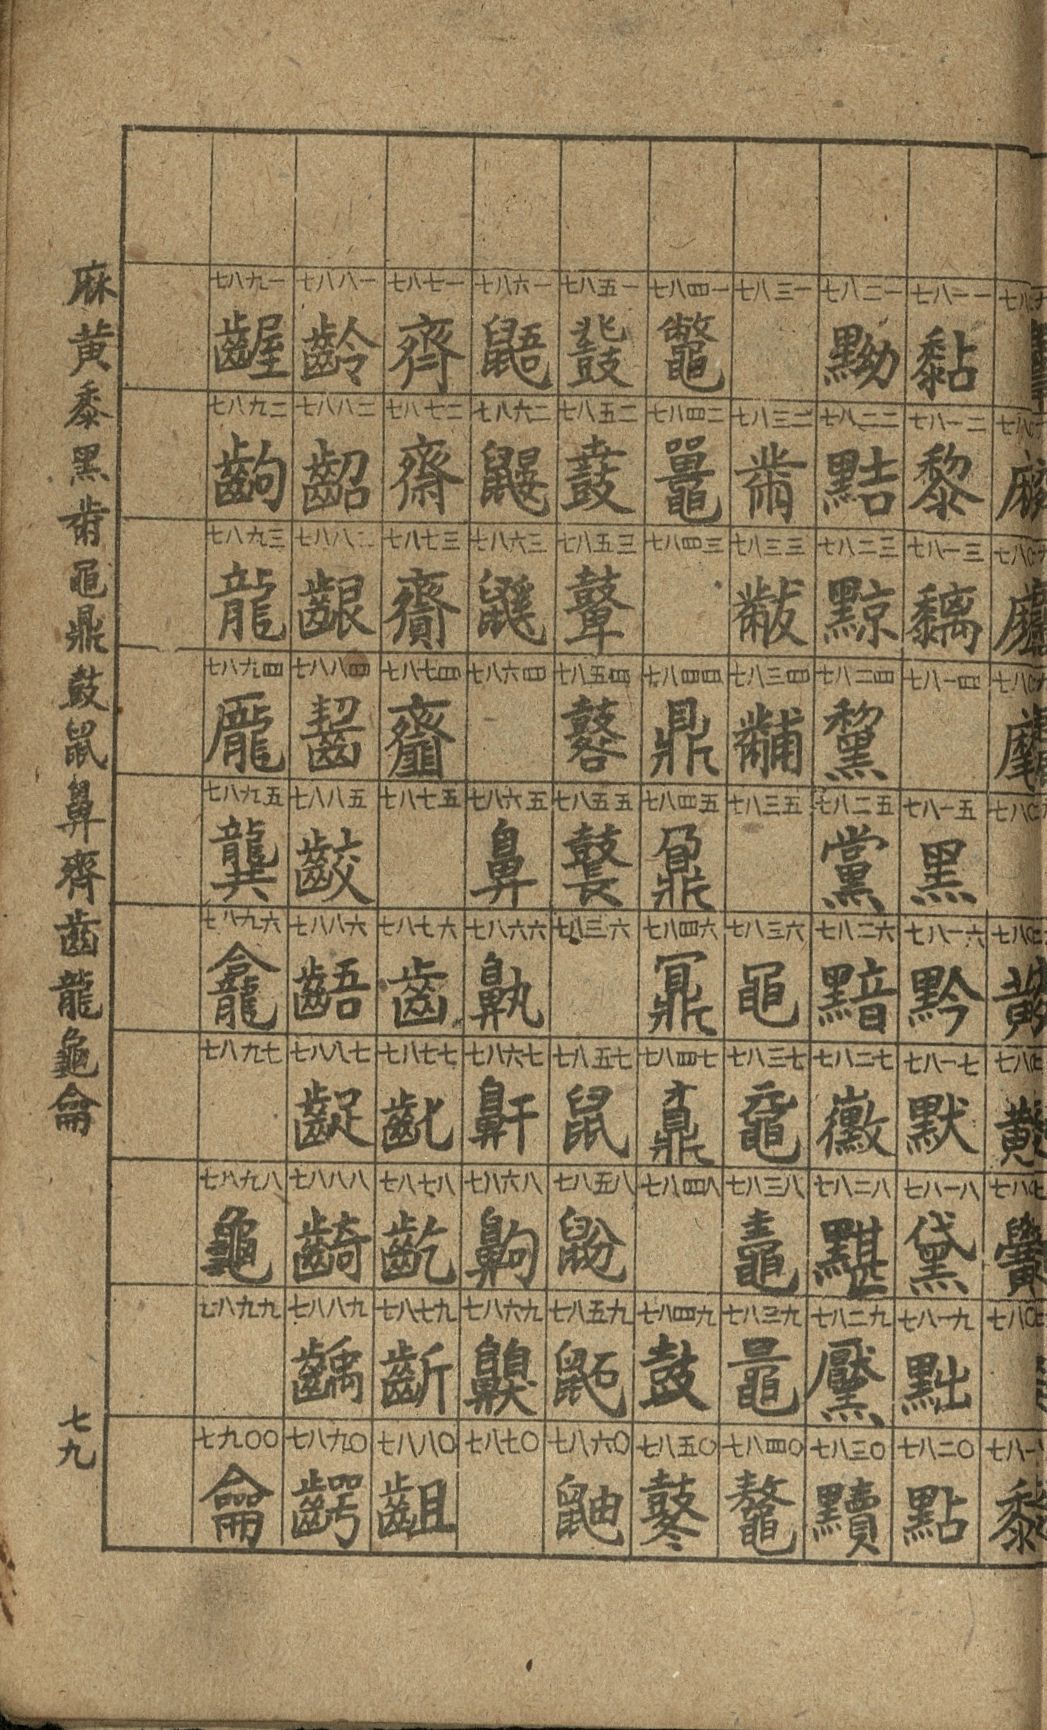 黍
七八一一 黏
七八一二 黎
七八一三 黐
七八一四
七八一五 黑
七八一六 黔
七八一七 默
七八一八 黛
七八一九 黜
七八二〇 點
七八二一 黝
七八二二 黠
七八二三 黥
七八二四 黧
七八二五 黨
七八二六 黯
七八二七 黴
七八二八 黮
七八二九 黶
七八三〇 黷
七八三一
七八三二 黹
七八三三 黻
七八三四 黼
七八三五
七八三六 黽
七八三七 黿
七八三八 鼃
七八三九 鼂
七八四〇 鼇
七八四一 鼈
七八四二 鼉
七八四三
七八四四 鼎
七八四五 鼐
七八四六 鼏
七八四七 鼒
七八四八
七八四九 鼓
七八五〇 鼕
七八五一 鼗
七八五二 鼖
七八五三 鼙
七八五四 鼛
七八五五 鼚
七八三六
七八五七 鼠
七八五八 鼢
七八五九 鼫
七八六〇 鼬
七八六一 鼯
七八六二 鼴
七八六三 鼷
七八六四
七八六五 鼻
七八六六 鼽
七八六七 鼾
七八六八 齁
七八六九 齅
七八七〇
七八七一 齊
七八七二 齋
七八七三 齎
七八七四 齏
七八七五
七八七六 齒
七八七七 齔
七八七八 齕
七八七九 齗
七八八〇 齟
七八八一 齡
七八八二 齠
七八八三 齦
七八八四 齧
七八八五 齩
七八八六 齬
七八八七 齪
七八八八 齮
七八八九 齲
七八九〇 齶
七八九一 齷
七八九二 齣
七八九三 龍
七八九四 龎
七八九五 龔
七八九六 龕
七八九七
七八九八 龜
七八九九
七九〇〇 龠
麻黃黍黑黹黽鼎鼓鼠鼻齊齒龍龜龠
七九